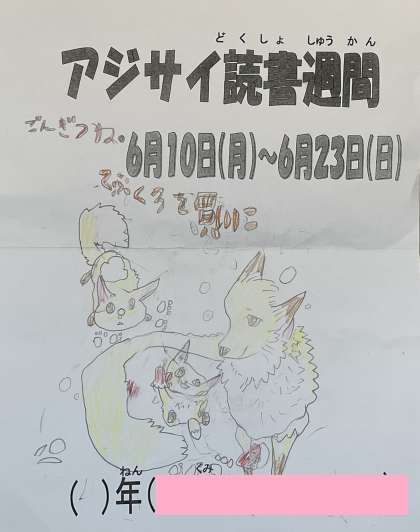 どくしょ しゅうかん
アジサイ読書週間
ごんぎつね。
6月10日(月)~6月23日(日)
てぶくろを買いに
ねん くみ
( )年(